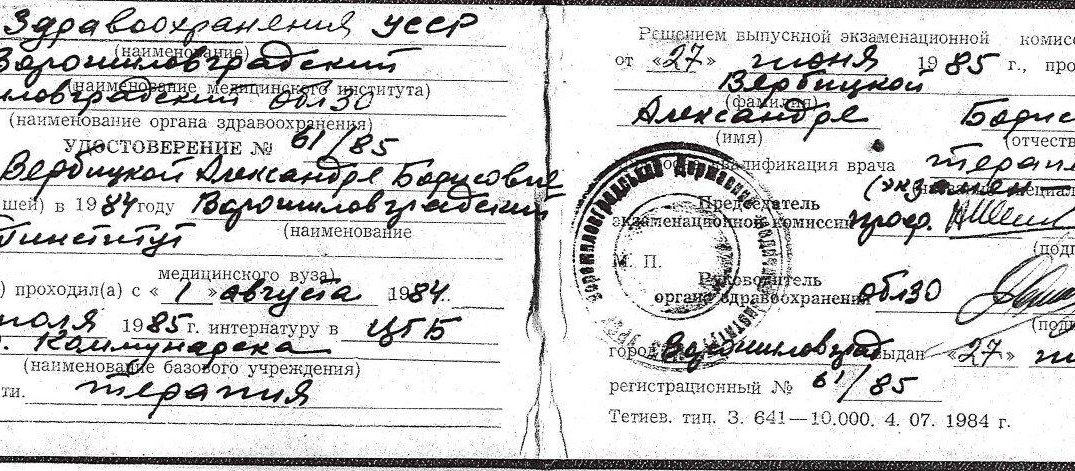 Здравоохранения УССР
(наименование)
Ворошиловградский
(наименование медицинского института)
ловградский облЗО
(наименование органа здравоохранения)
УДОСТОВЕРЕНИЕ № 61/85
Вербицкой Александре Борисовне
шей) в 1984 году Ворошиловградский
(наименование
институт
медицинского вуза)
) проходил(а) с « 1 » августа 1984
июля 1985 г. интернатуру в ЦГБ
г. Коммунарска
(наименование базового учреждения)
ти. терапия
Решением выпускной экзаменационной комисс
от «27» июня 1985 г., про
Вербицкой
(фамилия)
Александре Борис
(имя) (отчеств
квалификация врача терап
Председатель
экзаменационной комиссии проф.
(подп
М. П.
Руководитель
органа здравоохранения облЗО
(подп
город Ворошиловград выдан «27» ию
регистрационный № 61/85
Тетиев. тип. З. 641—10.000. 4. 07. 1984 г.